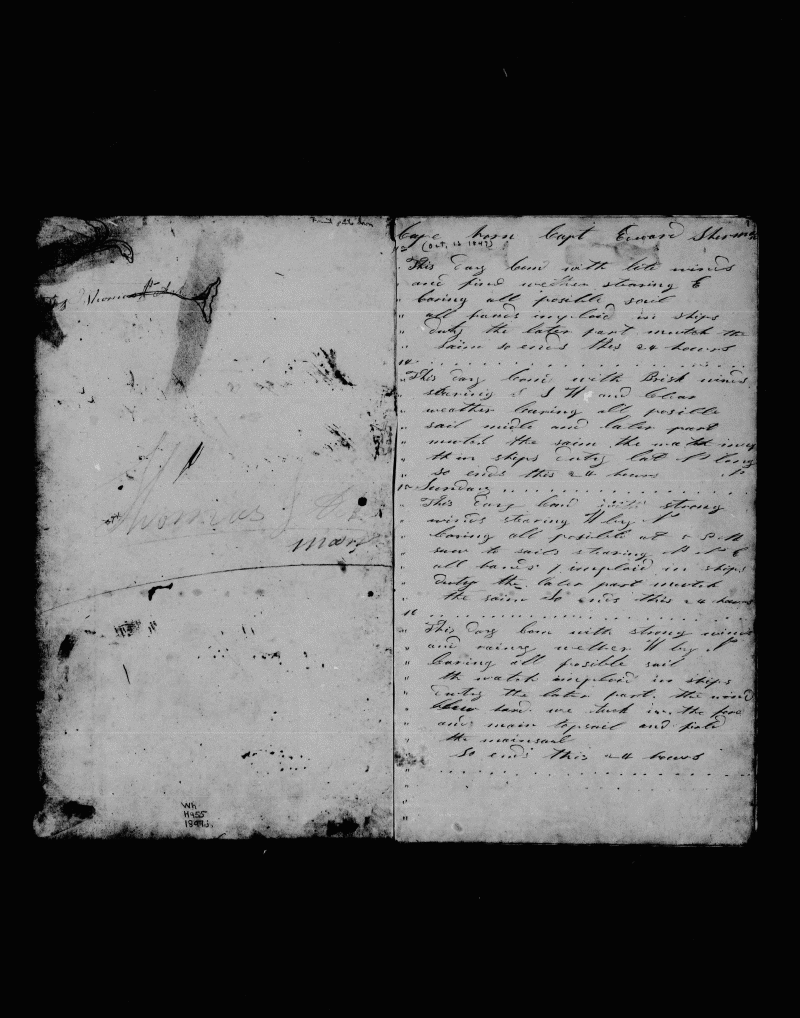 Thomas
Thomas J
Wh
H955
1847J.
Cape horn Capt Edward Sherman
(Oct. 13 1847)
This day Coms with lite winds
and find wether staring E
Caring all posible sail
all hands imploid in ships
duty the later part mutch the
saim so ends this 24 hours
14
This day Coms with Brisk winds
staring S W and Clear
weather Caring all posible
sail midle and later part
mutch the saim the watch
ships duty lat
so ends this 24 hours
15 Sunday
This day Coms with strong
winds staring W by N
Caring all posible at 5 P M
saw to sails staring
all hands imploid in ships
duty the later part mutch
the saim So ends this 24 hours
16
This day Com with strong winds
and rainy wether W by N
Caring all posible sail
th watch imploid in ships
duty the later part the wind
blew hard we tuck in the fore
and main topsail and
the mainsail
So ends this 24 hours